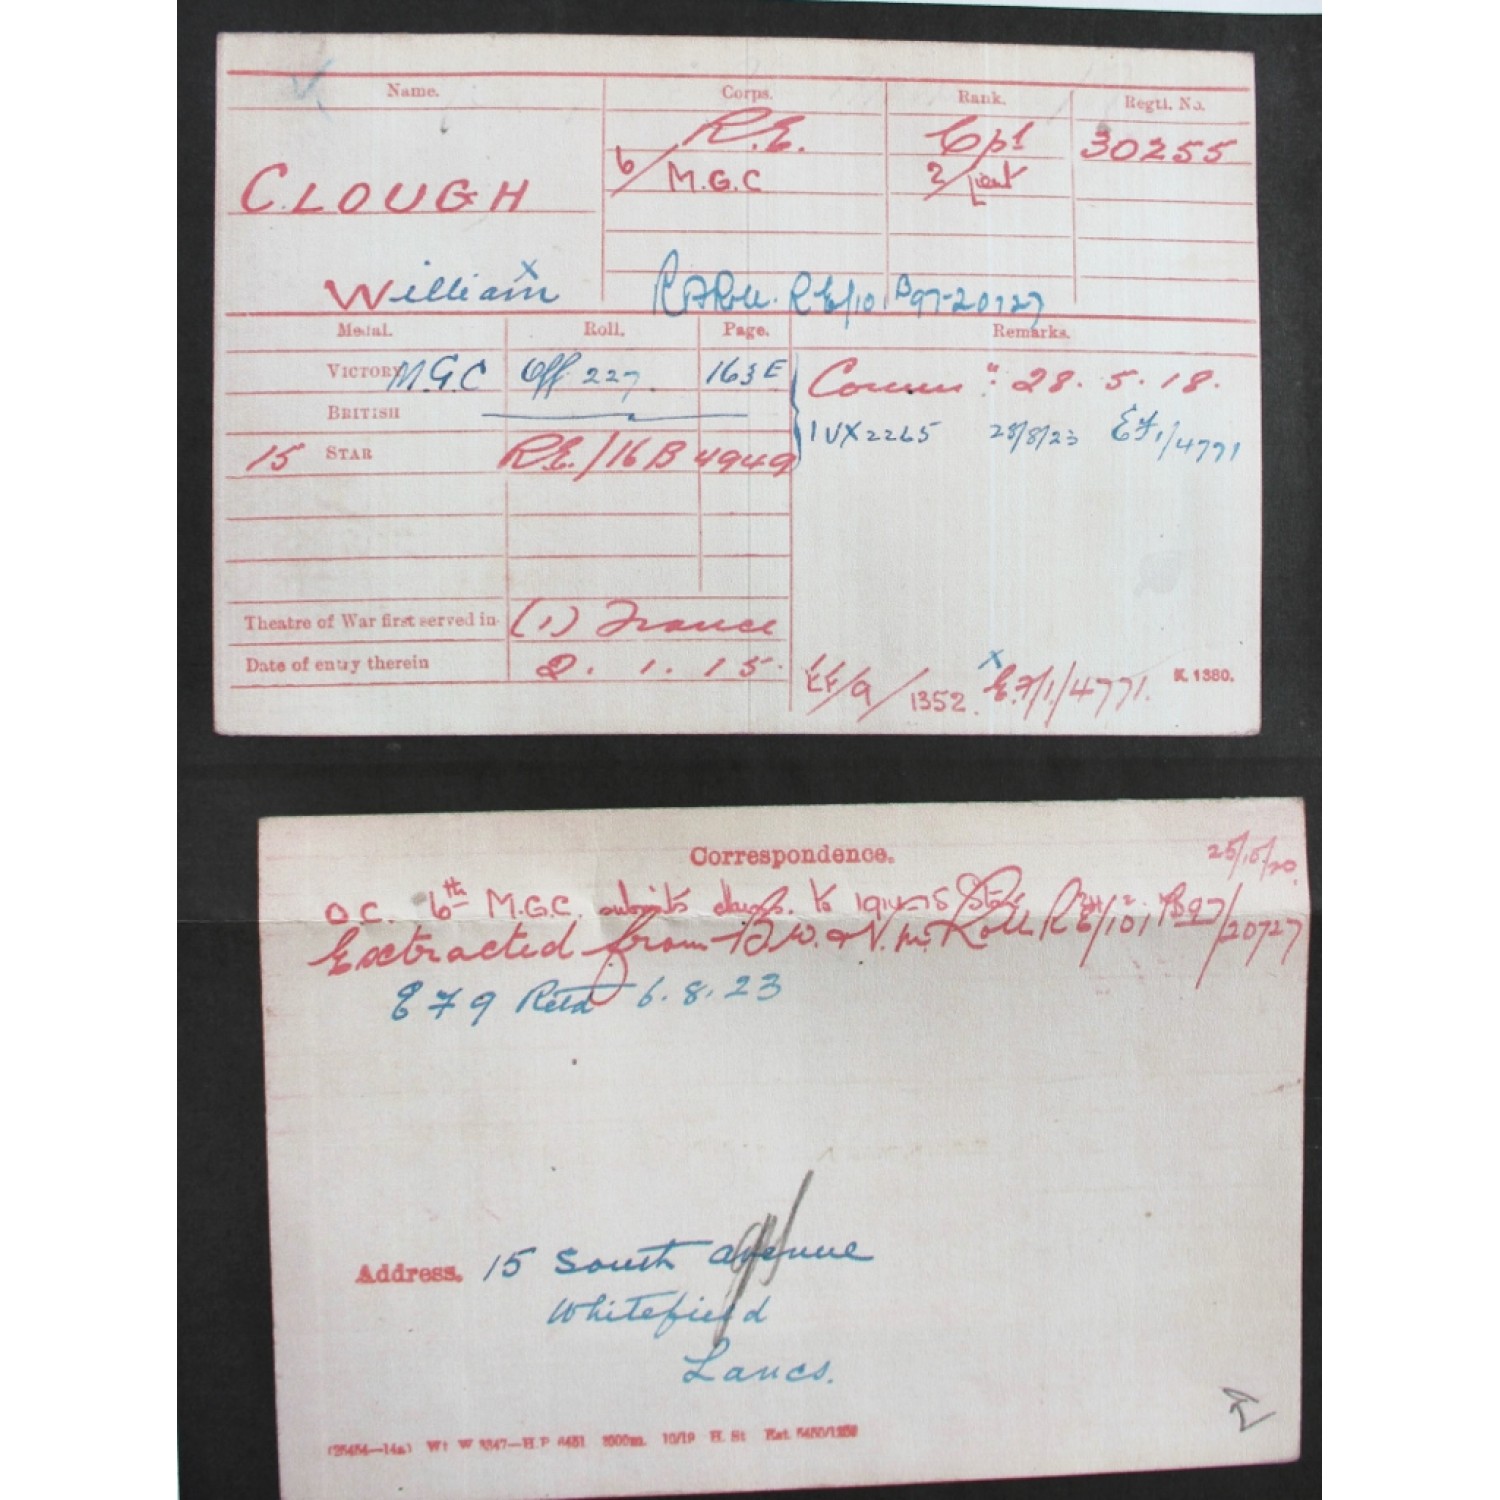 Name. Corps. Rank. Regtl. No.
R.E. Cpl 30255
CLOUGH 6/ M.G.C 2/Lieut
William x R.E/101 B97-20727
Medal. Roll. Page. Remarks.
VICTORY M.G.C Off 227. 163E Comm": 28.5.18.
BRITISH IVX2265 23/8/23 EF1/4771
15 STAR R.E./16B 4949
Theatre of War first served in (1) France
Date of entry therein 2.1.15.
EF/9/1352. x E.F/1/4771. K. 1380.
Correspondence. 25/10/20
O.C. 6th M.G.C. submits to 1914-15 Star
Extracted from B.W. & V.M. Roll RE/101 B97/20727
EF9 Retd 6.8.23
Address. 15 South Avenue
Whitefield
Lancs.
(25454—14a) Wt W 5347—H.P 6451 1000m. 10/19 H. St Est. 5450/1259